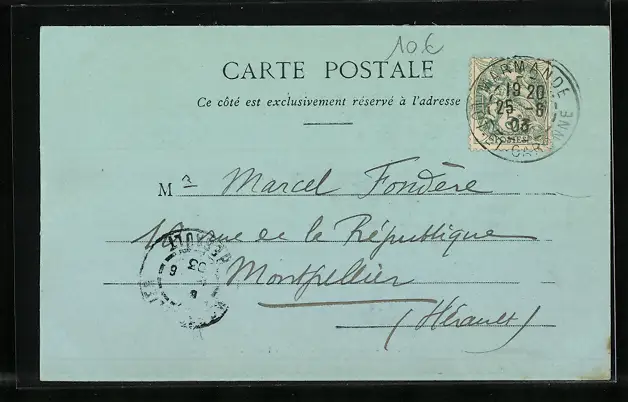 10 €
CARTE POSTALE
Ce côté est exclusivement réservé à l'adresse
MARMANDE
19 20
25 6
03
LOT-ET-GARONNE
Mr Marcel Fondère
rue de la République
Montpellier
(Hérault)
HERAULT
6
03